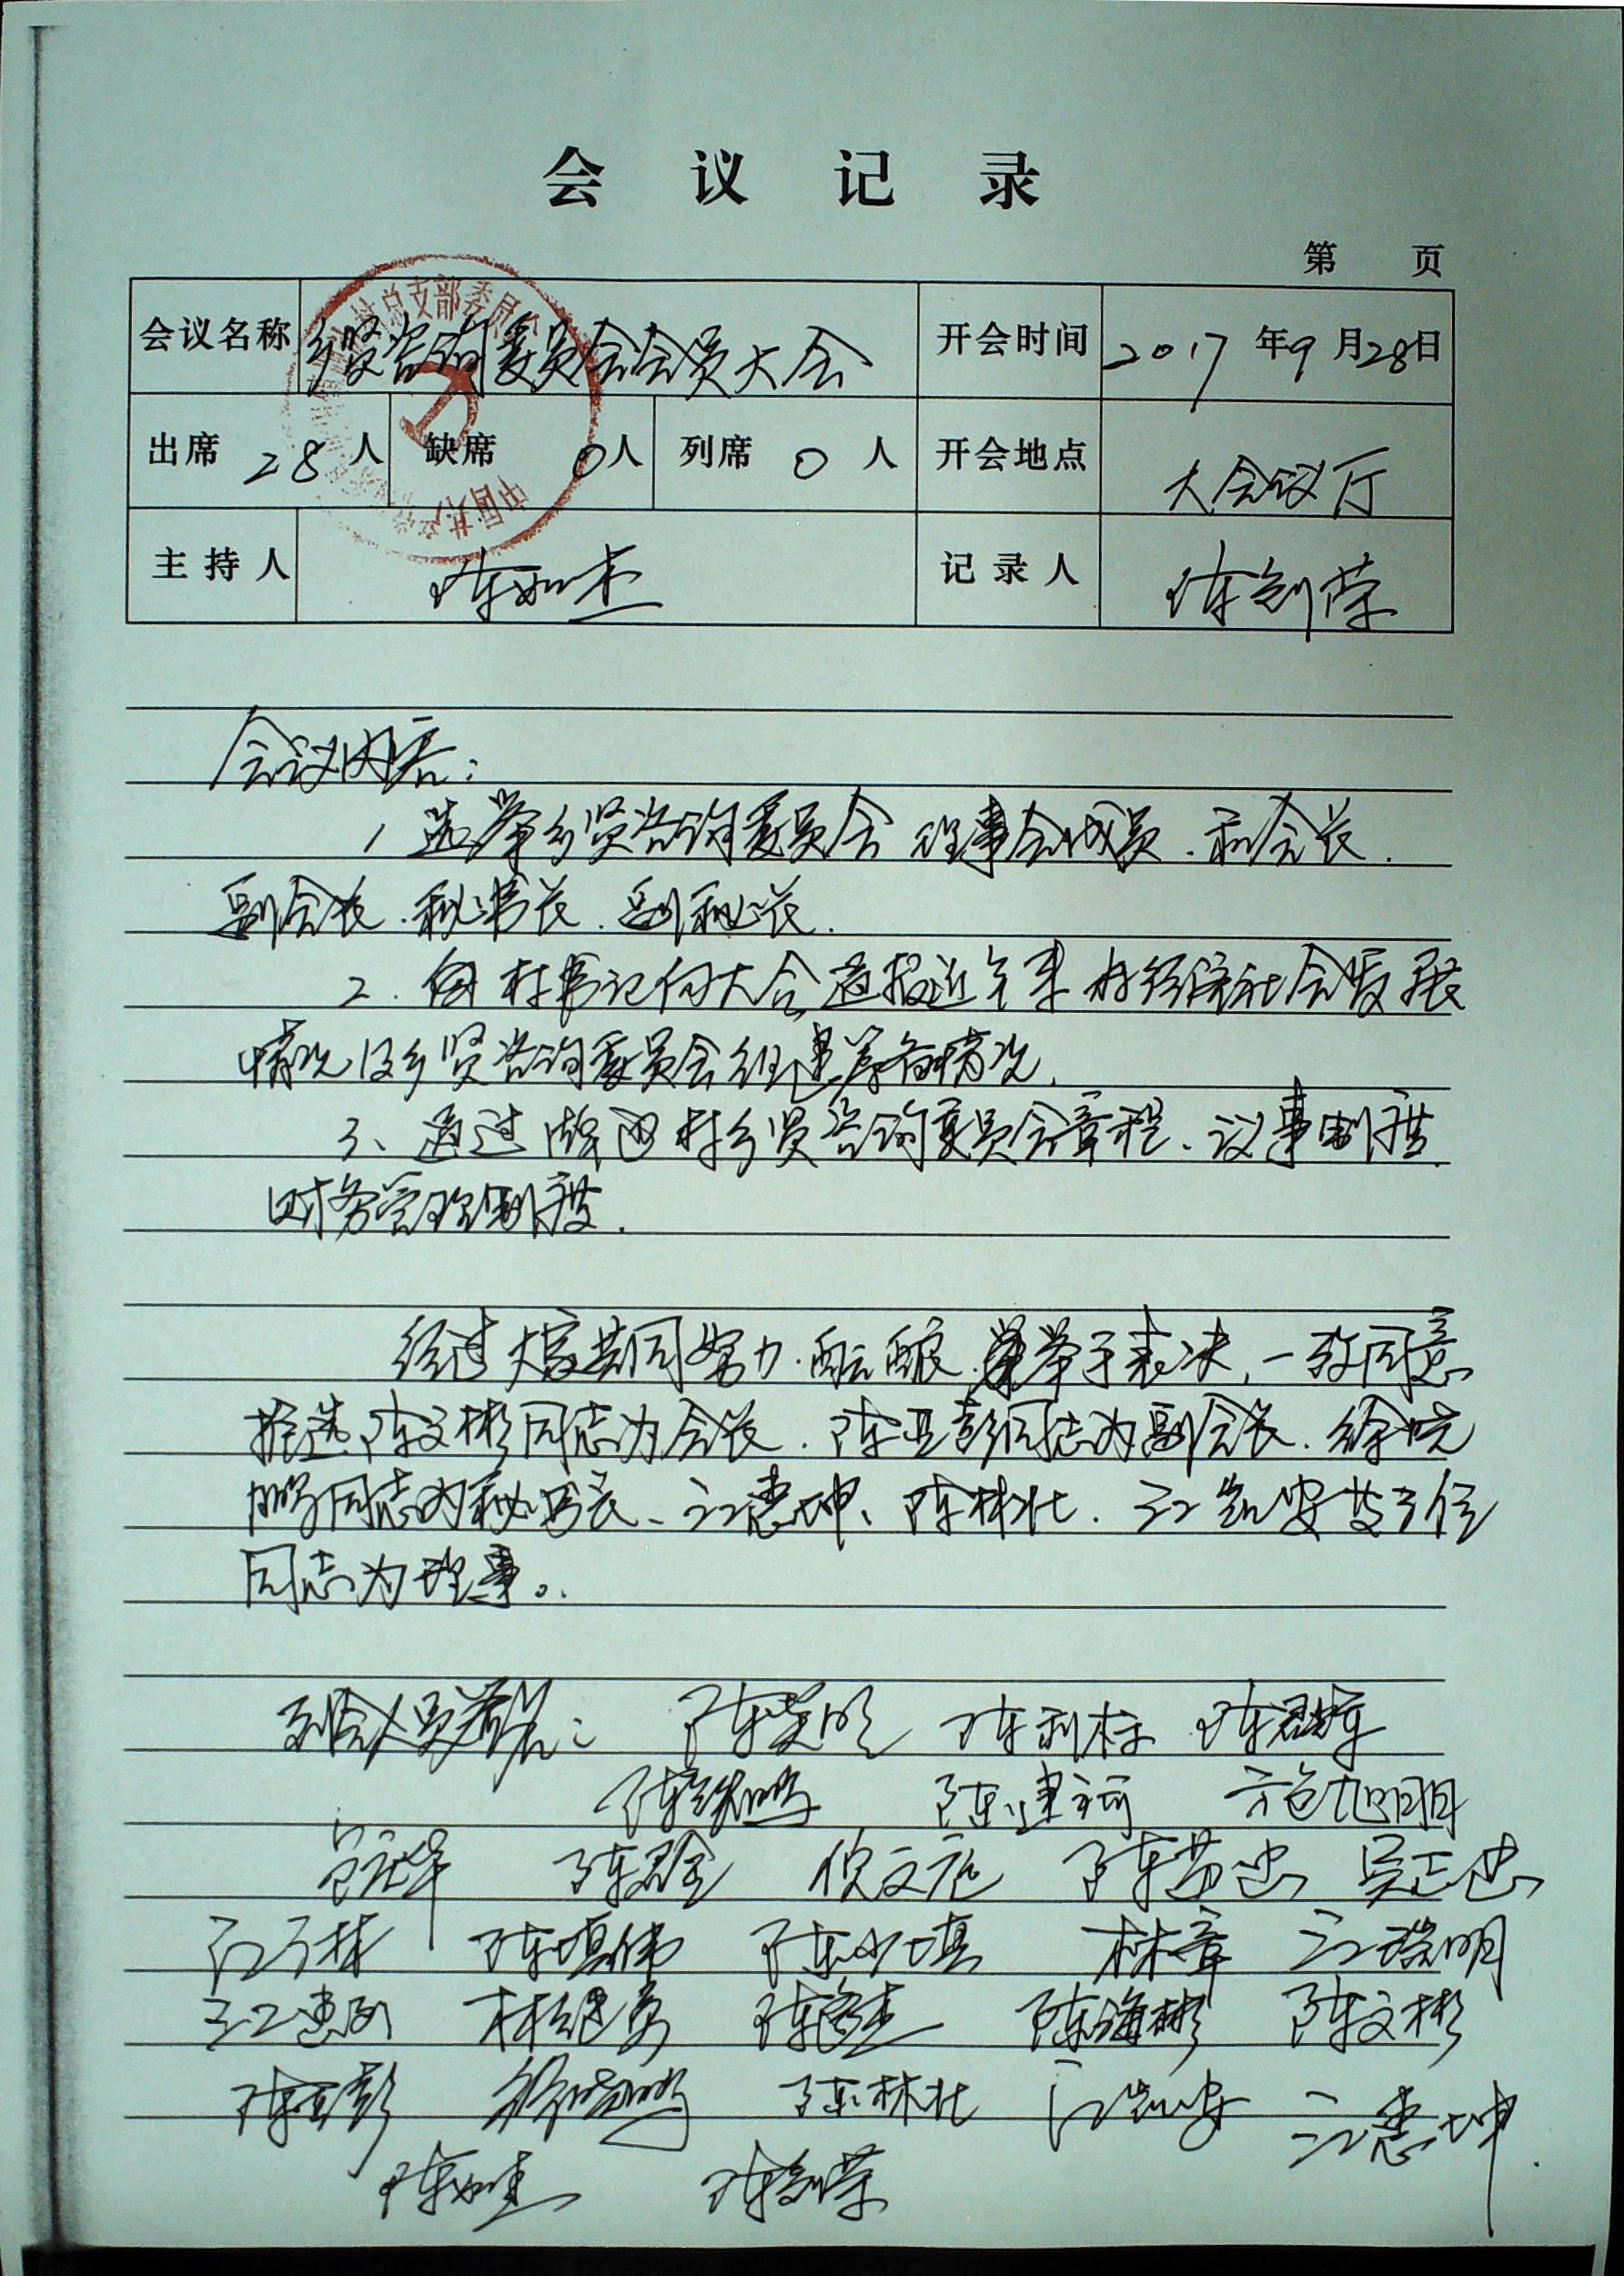 会议记录
第 页
会议名称 乡贤咨询委员会会员大会 开会时间 2017年9月28日
村总支部委员会
中国共产党
出席 28 人 缺席 0人 列席 0 人 开会地点 大会议厅
主持人 陈如杰 记录人 陈剑荣
会议内容:
1 选举乡贤咨询委员会理事会成员.和会长.
副会长.秘书长.副秘长.
2. 由村书记向大会通报近年来村经济社会发展
情况及乡贤咨询委员会组建筹备情况.
3、通过 西村乡贤咨询委员会章程、议事制度
财务管理制度.
经过大家共同努力.酝酿.举手表决,一致同意
推选陈文彬同志为会长.陈亚彭同志为副会长.徐晓
鹏同志为秘书长、江惠坤、陈林北.江凯安等三位
同志为理事。
到会人员签名: 陈利标
陈建 旭明
陈 文 陈 忠 吴正忠
江 林 陈 伟 陈少填 林章 江 明
江惠 林继 陈 杰 陈海彬 陈文彬
陈亚彭 徐晓鹏 陈林北 江凯安 江惠坤
陈如杰 陈剑荣